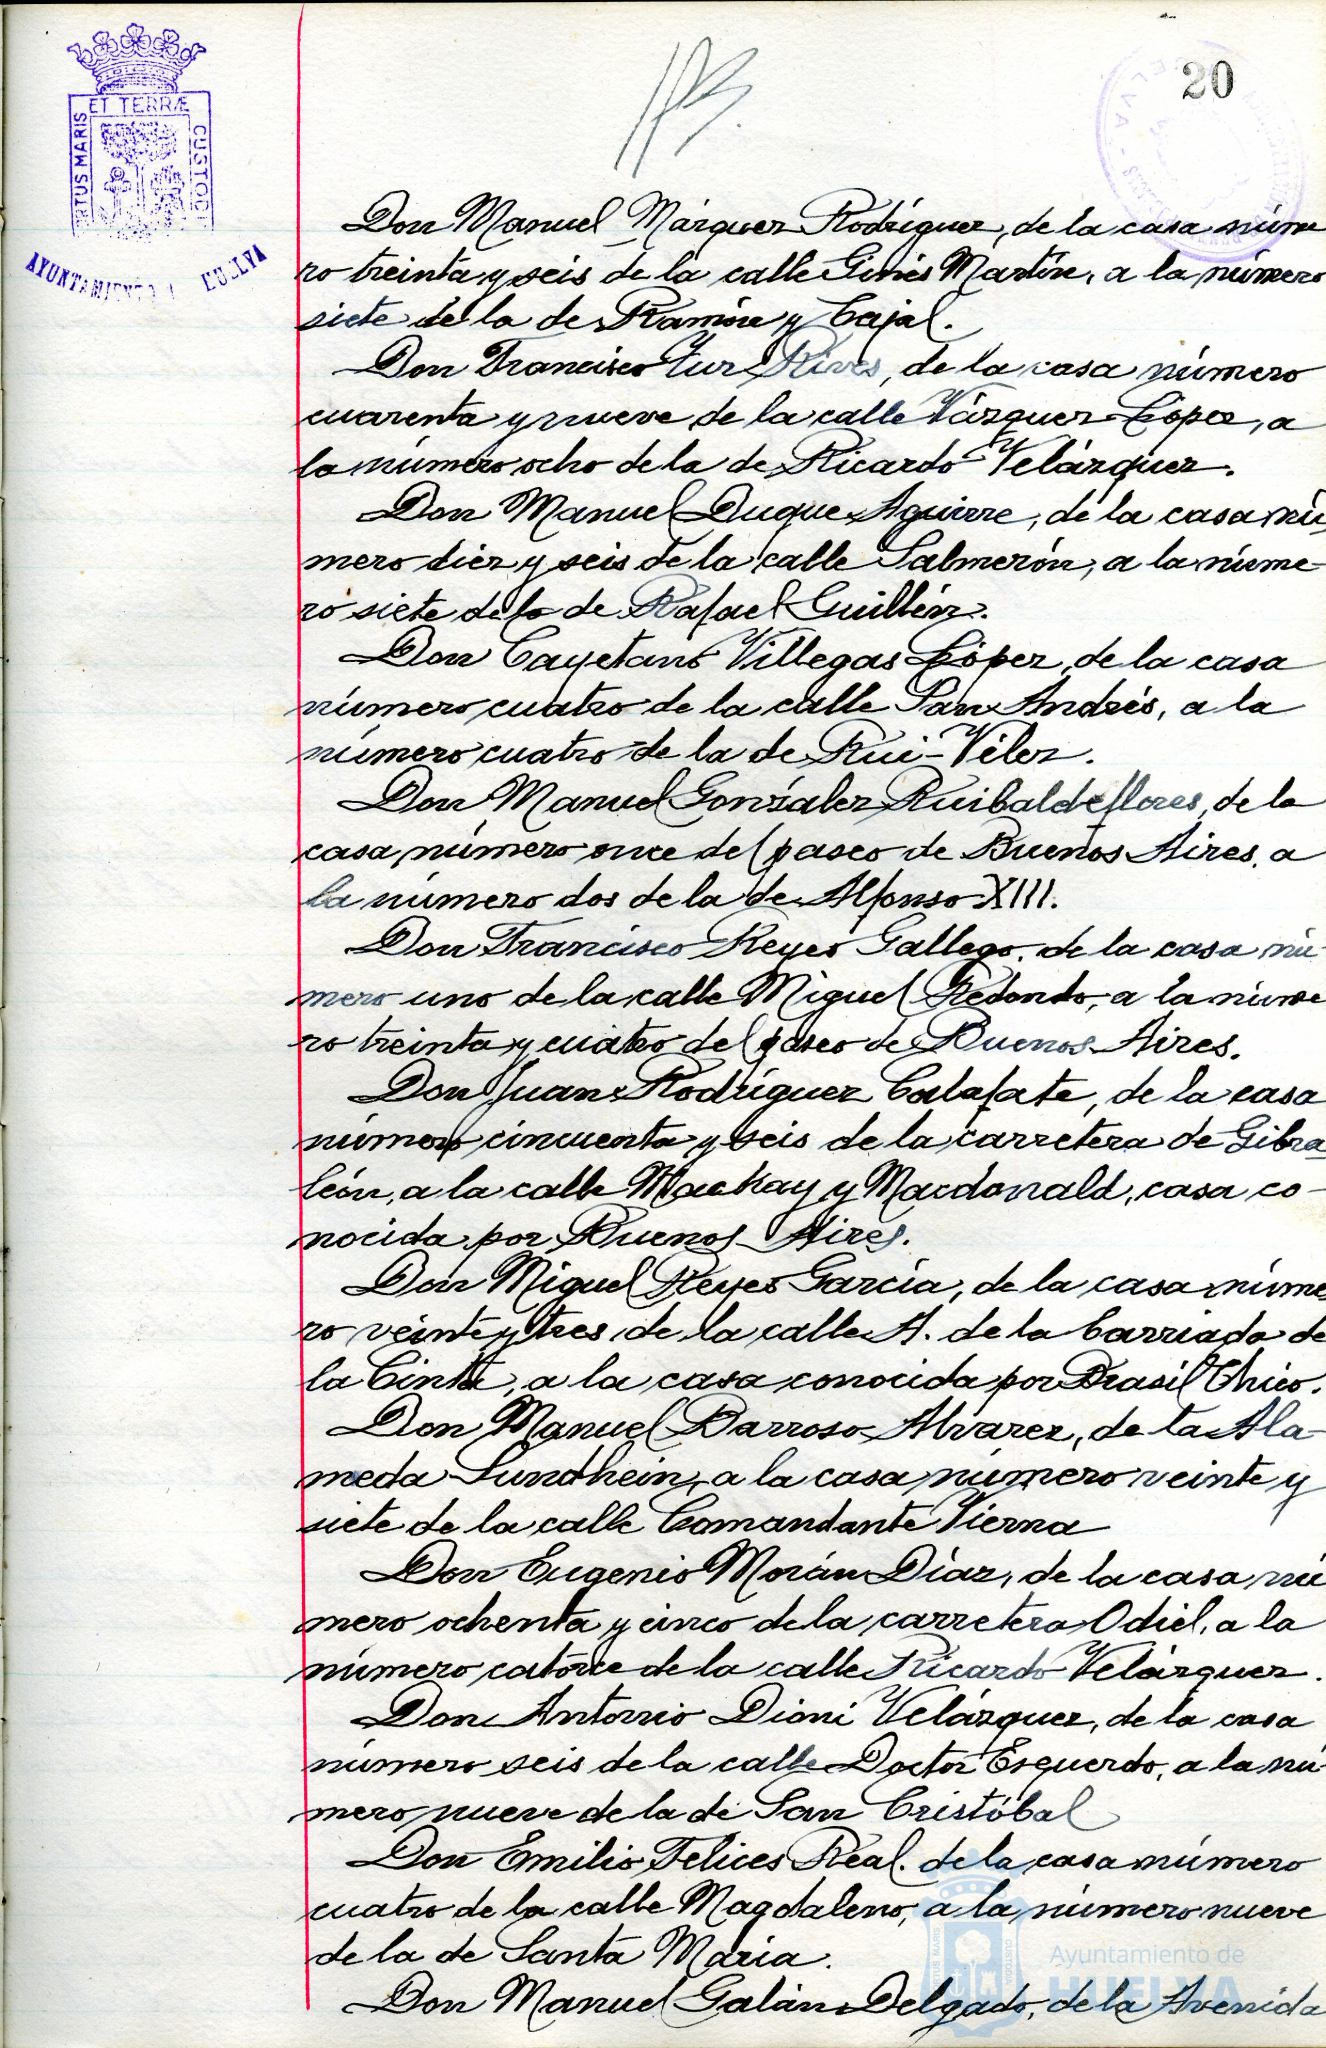 20
ET TERRÆ
RTUS MARIS
CUSTODI
AYUNTAMIENTO HUELVA
Don Manuel Márquez Rodríguez, de la casa núme
ro treinta y seis de la calle Ginés Martín, a la número
siete de la de Ramón y Cajal.
Don Francisco Tur Rives, de la casa número
cuarenta y nueve de la calle Vázquez López, a
la número ocho de la de Ricardo Velázquez.
Don Manuel Duque Aguirre, de la casa nú
mero diez y seis de la calle Salmerón, a la núme-
ro siete de la de Rafael Guillén.
Don Cayetano Villegas López, de la casa
número cuatro de la calle San Andrés, a la
número cuatro de la de Rui-Vélez.
Don Manuel González Ruibaldeflores, de la
casa número once del paseo de Buenos Aires, a
la número dos de la de Alfonso XIII.
Don Francisco Reyes Gallego, de la casa nú-
mero uno de la calle Miguel Redondo, a la núme
ro treinta y cuatro del paseo de Buenos Aires.
Don Juan Rodríguez Calafate, de la casa
número cincuenta y seis de la carretera de Gibra
león, a la calle Mackay y Macdonald, casa co-
nocida por Buenos Aires.
Don Miguel Reyes García, de la casa núme
ro veinte y tres de la calle A. de la barriada de
la Cinta, a la casa conocida por Brasil Chico.
Don Manuel Barroso Alvarez, de la Ala-
meda Sundhein, a la casa número veinte y
siete de la calle Comandante Vierna
Don Eugenio Morán Díaz, de la casa nú
mero ochenta y cinco de la carretera Odiel, a la
número catorce de la calle Ricardo Velázquez.
Don Antonio Dioni Velázquez, de la casa
número seis de la calle Doctor Esquerdo, a la nú-
mero nueve de la de San Cristóbal
Don Emilio Felices Real, de la casa número
cuatro de la calle Magdaleno, a la número nueve
de la de Santa María.
Don Manuel Galán Delgado, de la Avenida
Ayuntamiento de
HUELVA